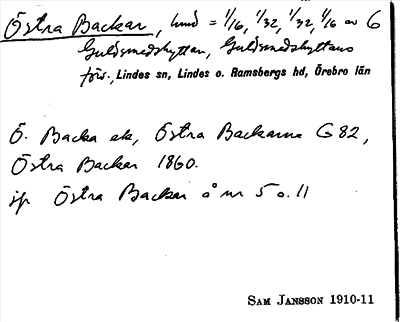 Östra Backar, hmd = 1/16, 1/32, 1/32, 1/16 av 6
Guldsmedshyttan, Guldsmedshyttans
förs., Lindes sn, Lindes o. Ramsbergs hd, Örebro län
Ö. Backa ek, Östra Backarna G 82,
Östra Backar 1860.
jfr Östra Backar å nr 5 o. 11
SAM JANSSON 1910-11